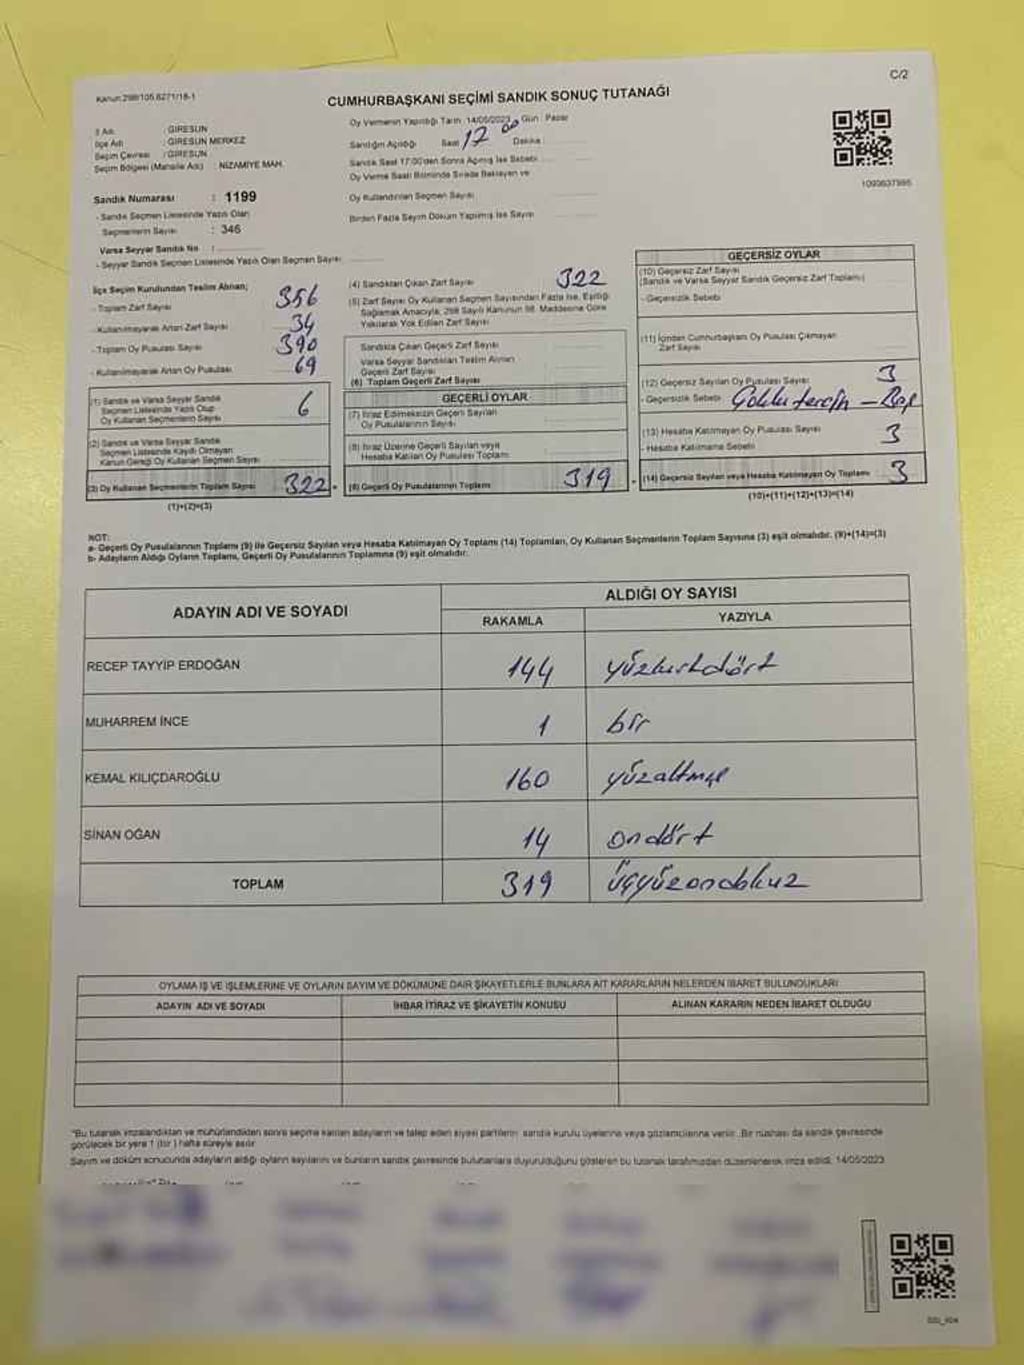 C/2
Kanun:298/105,6271/18-1
CUMHURBAŞKANI SEÇİMİ SANDIK SONUÇ TUTANAĞI
İl Adı : GİRESUN
İlçe Adı : GİRESUN MERKEZ
Seçim Çevresi : GİRESUN
Seçim Bölgesi (Mahalle Adı) : NİZAMİYE MAH.
Sandık Numarası : 1199
- Sandık Seçmen Listesinde Yazılı Olan
Seçmenlerin Sayısı : 346
Varsa Seyyar Sandık No :
- Seyyar Sandık Seçmen Listesinde Yazılı Olan Seçmen Sayısı
Oy Vermenin Yapıldığı Tarih :14/05/2023 Gün : Pazar
Sandığın Açıldığı Saat 17 00 Dakika :
Sandık Saat 17:00'den Sonra Açılmış İse Sebebi
Oy Verme Saati Bitiminde Sırada Bekleyen ve
Oy Kullandırılan Seçmen Sayısı
Birden Fazla Sayım Döküm Yapılmış İse Sayısı
İlçe Seçim Kurulundan Teslim Alınan;
- Toplam Zarf Sayısı 356
- Kullanılmayarak Artan Zarf Sayısı 34
- Toplam Oy Pusulası Sayısı 390
- Kullanılmayarak Artan Oy Pusulası 69
(1) Sandık ve Varsa Seyyar Sandık
Seçmen Listesinde Yazılı Olup
Oy Kullanan Seçmenlerin Sayısı 6
(2) Sandık ve Varsa Seyyar Sandık
Seçmen Listesinde Kayıtlı Olmayan
Kanun Gereği Oy Kullanan Seçmen Sayısı
(3) Oy Kullanan Seçmenlerin Toplam Sayısı 322 =
(1)+(2)=(3)
(4) Sandıktan Çıkan Zarf Sayısı 322
(5) Zarf Sayısı Oy Kullanan Seçmen Sayısından Fazla İse, Eşitliği
Sağlamak Amacıyla, 298 Sayılı Kanunun 98. Maddesine Göre
Yakılarak Yok Edilen Zarf Sayısı
Sandıkta Çıkan Geçerli Zarf Sayısı
Varsa Seyyar Sandıktan Teslim Alınan
Geçerli Zarf Sayısı
(6) Toplam Geçerli Zarf Sayısı
GEÇERLİ OYLAR
(7) İtiraz Edilmeksizin Geçerli Sayılan
Oy Pusulalarının Sayısı
(8) İtiraz Üzerine Geçerli Sayılan veya
Hesaba Katılan Oy Pusulası Toplamı
(9) Geçerli Oy Pusulalarının Toplamı 319
1090637985
GEÇERSİZ OYLAR
(10) Geçersiz Zarf Sayısı
(Sandık ve Varsa Seyyar Sandık Geçersiz Zarf Toplamı)
- Geçersizlik Sebebi
(11) İçinden Cumhurbaşkanı Oy Pusulası Çıkmayan
Zarf Sayısı
(12) Geçersiz Sayılan Oy Pusulası Sayısı 3
- Geçersizlik Sebebi Çoklu tercih
(13) Hesaba Katılmayan Oy Pusulası Sayısı 3
- Hesaba Katılmama Sebebi
(14) Geçersiz Sayılan veya Hesaba Katılmayan Oy Toplamı 3
(10)+(11)+(12)+(13)=(14)
NOT:
a- Geçerli Oy Pusulalarının Toplamı (9) ile Geçersiz Sayılan veya Hesaba Katılmayan Oy Toplamı (14) Toplamları, Oy Kullanan Seçmenlerin Toplam Sayısına (3) eşit olmalıdır. (9)+(14)=(3)
b- Adayların Aldığı Oyların Toplamı, Geçerli Oy Pusulalarının Toplamına (9) eşit olmalıdır.
ADAYIN ADI VE SOYADI
ALDIĞI OY SAYISI
RAKAMLA YAZIYLA
RECEP TAYYİP ERDOĞAN 144 yüzkırkdört
MUHARREM İNCE 1 bir
KEMAL KILIÇDAROĞLU 160 yüzaltmış
SİNAN OĞAN 14 ondört
TOPLAM 319 üçyüzondokuz
OYLAMA İŞ VE İŞLEMLERİNE VE OYLARIN SAYIM VE DÖKÜMÜNE DAİR ŞİKAYETLERLE BUNLARA AİT KARARLARIN NELERDEN İBARET BULUNDUKLARI
ADAYIN ADI VE SOYADI İHBAR İTİRAZ VE ŞİKAYETİN KONUSU ALINAN KARARIN NEDEN İBARET OLDUĞU
"Bu tutanak imzalandıktan ve mühürlendikten sonra seçime katılan adayların ve talep eden siyasi partilerin sandık kurulu üyelerine veya gözlemcilerine verilir. Bir nüshası da sandık çevresinde
görülecek bir yere 1 (bir ) hafta süreyle asılır.
Sayım ve döküm sonucunda adayların aldığı oyların sayılarını ve bunların sandık çevresinde bulunanlara duyurulduğunu gösteren bu tutanak tarafımızdan düzenlenerek imza edildi. 14/05/2023